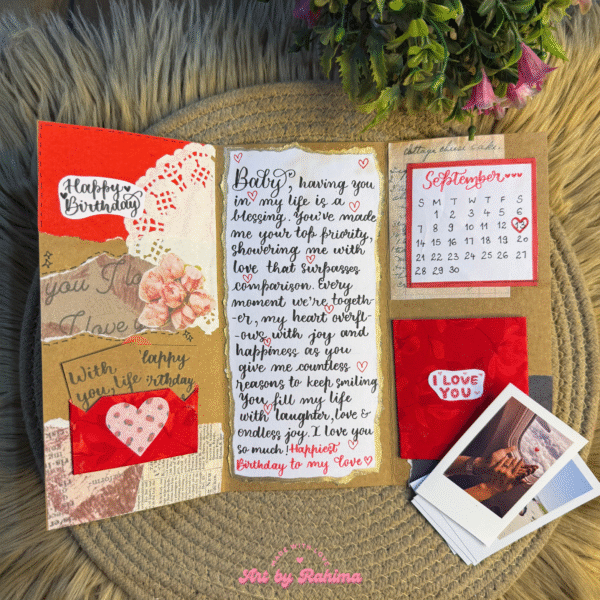 Happy
Birthday
you I lo
I love
With
you, life
'lappy
Birthday
Baby, having you
in my life is a
blessing. You've made
me your top priority,
showering me with
love that surpasses
comparison. Every
moment we're togeth-
-er, my heart overfl-
-ows with joy and
happiness as you
give me countless
reasons to keep smiling
You fill my life
with laughter, love &
endless joy. I love you
so much! Happiest
Birthday to my love
cottage cheese cake.
September
S M T W T F S
1 2 3 4 5 6
7 8 9 10 11 12
14 15 16 17 18 19 20
21 22 23 24 25 26 27
28 29 30
I LOVE
YOU
Art by Rahima